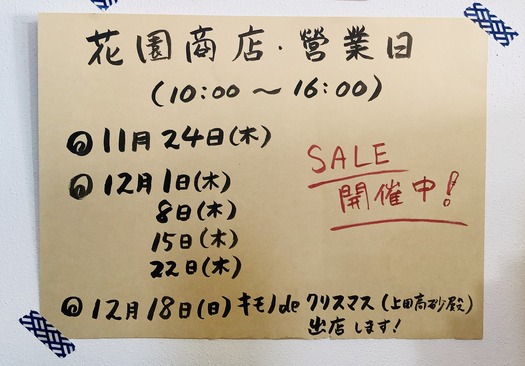 花園商店・營業日
(10:00 〜 16:00)
11月 24日(木)
SALE
開催中!
12月 1日(木)
8日(木)
15日(木)
22日(木)
12月 18日(日) キモノde クリスマス (上田高砂殿)
出店します!